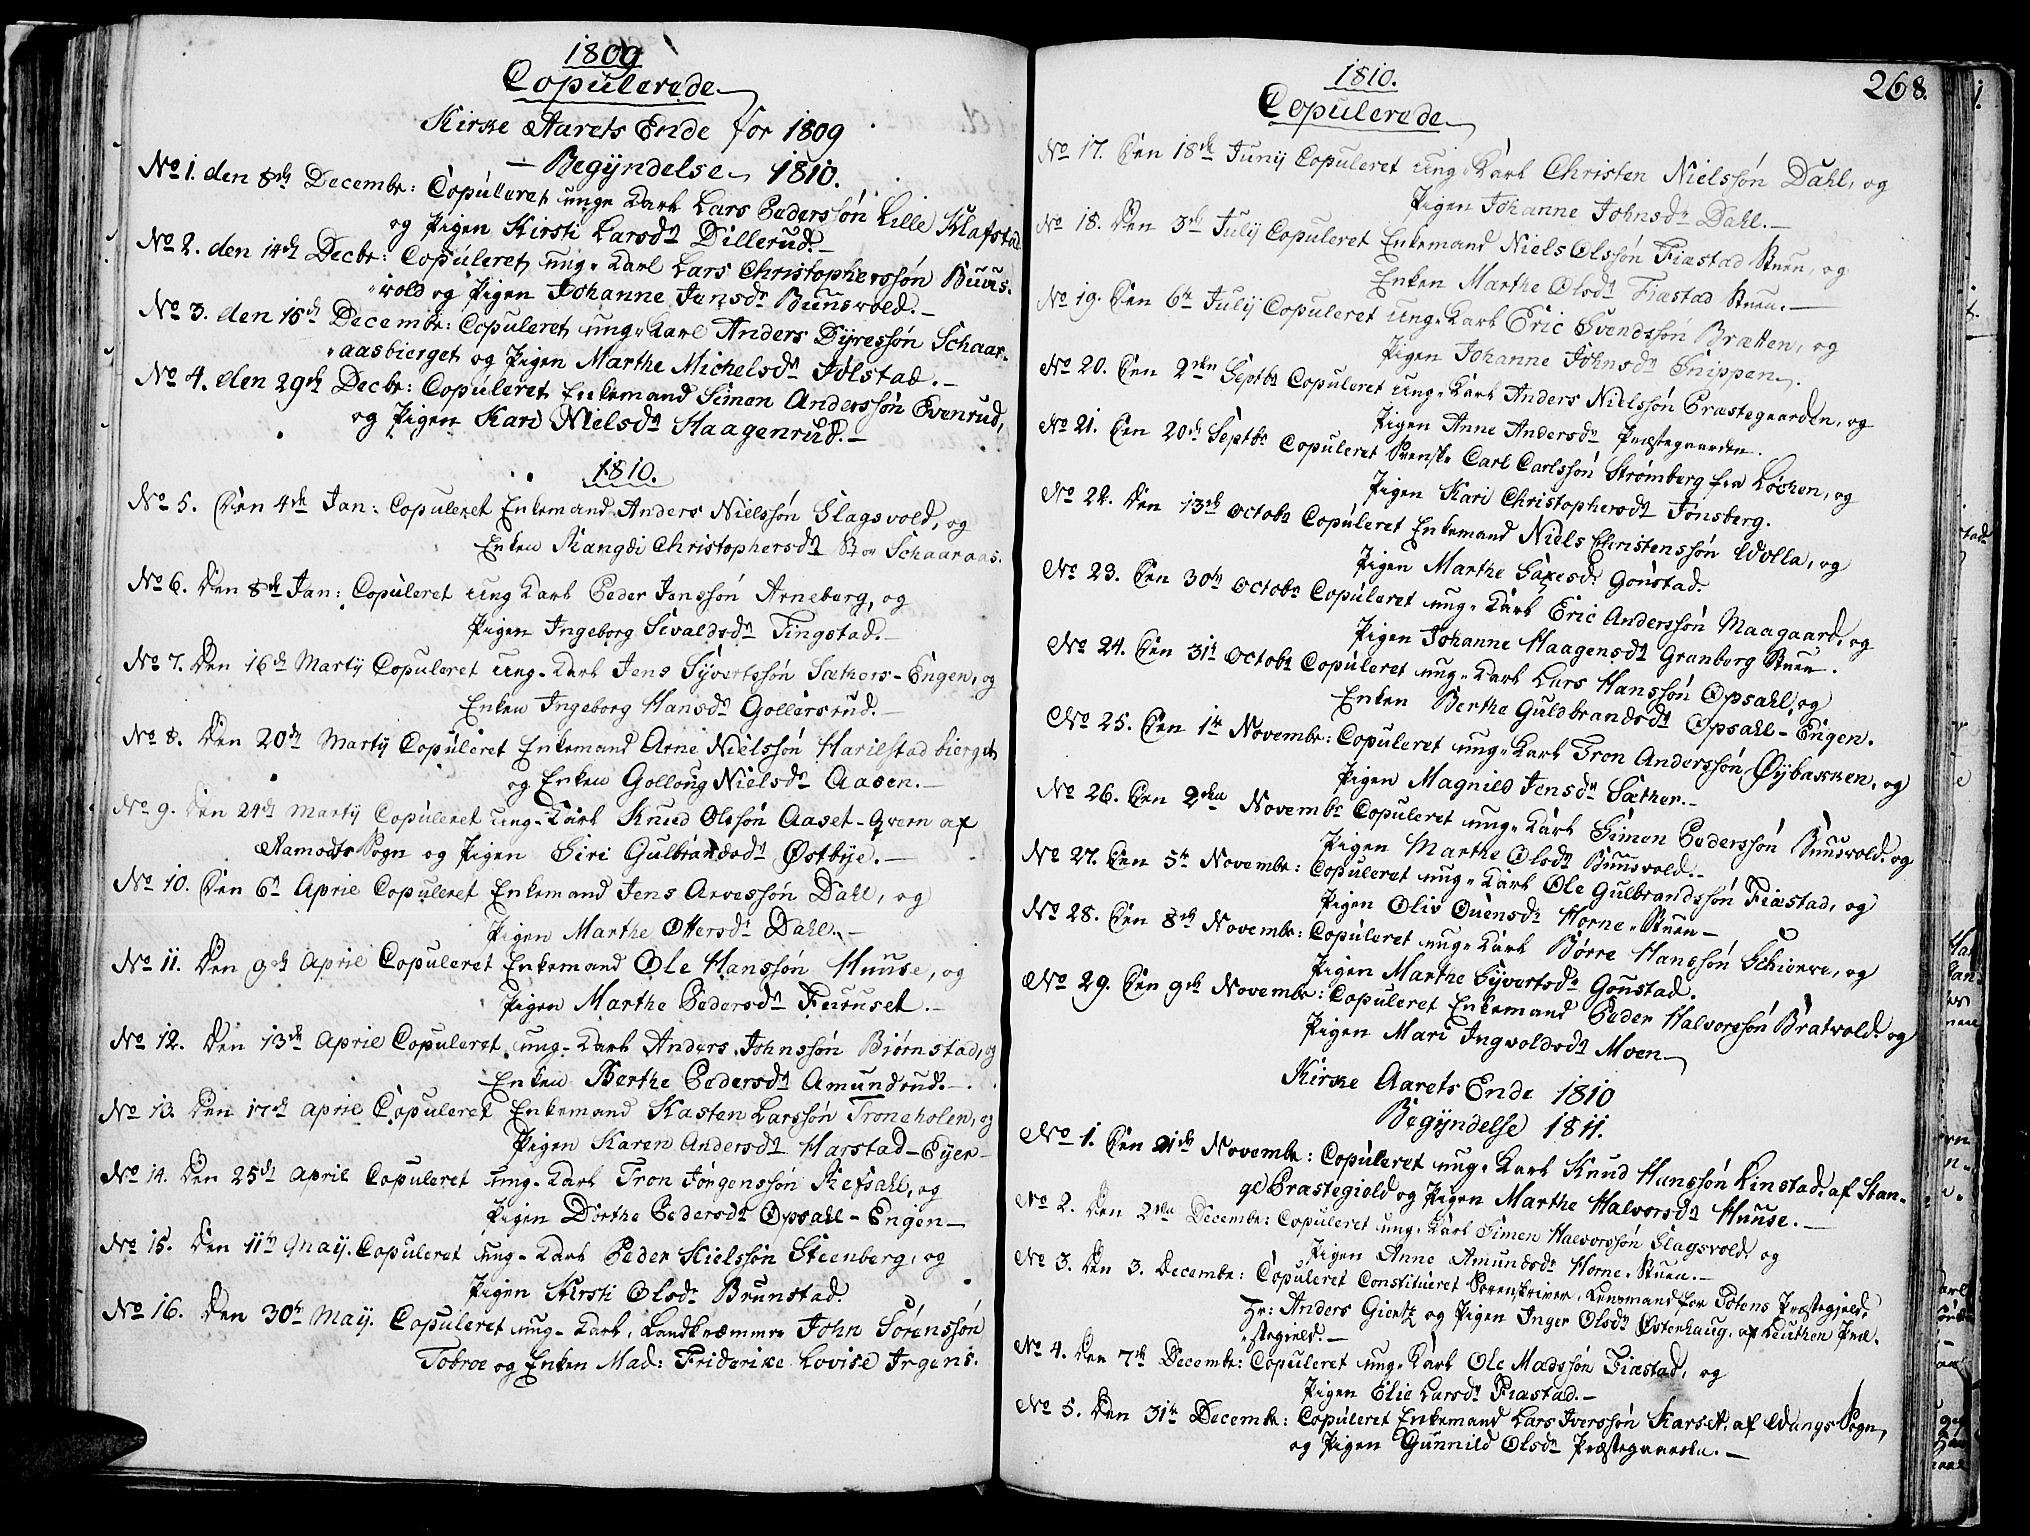 1809
Copulerede
Kirke Aarets Ende for 1809
— Begÿndelse 1810.
No 1. den 8de Decembr: Copuleret unge Karl Lars Pederssøn Lille Klafstad
og Pigen Kirsti Larsdr Dillerud.—
No 2. den 14de Decbr: Copuleret ung- Karl Lars Christopherssøn Buuns-
vold og Pigen Johanne Jensdr Buunsvold.—
No 3. den 15de Decembr: Copuleret ung- Karl Anders Dÿressøn Schaar-
aasbierget og Pigen Marthe Michelsdr Jølstad.—
No 4. den 29de Decbr: Copuleret Enkemand Simen Anderssøn Evenrud,
og Pigen Kari Nielsdr Haagenrud.—
1810.
No 5. Den 4de Jan: Copuleret Enkemand Anders Nielssøn Slagsvold, og
Enken Rangdi Christophersdr Stor Schaaraas.
No 6. Den 8de Jan: Copuleret ung Karl Peder Janssøn Arneberg, og
Pigen Ingeborg Sivaldsdr Tingstad.—
No 7. Den 16de Martÿ Copuleret ung- Karl Jens Sÿvertssøn Sæthers-Engen, og
Enken Ingeborg Hansdr Gollersrud.—
No 8. Den 20de Martÿ Copuleret Enkemand Arne Nielssøn Harilstad bierget
og Enken Golloug Nielsdr Aasen.—
No 9. Den 24de Martÿ Copuleret ung- Karl Knud Olssøn Aaset-Qvern af
Aamodts Sogn og Pigen Siri Gulbrandsdr Østbÿe.—
No 10. Den 6te April Copuleret Enkemand Jens Arvessøn Dahl, og
Pigen Marthe Ottersdr Dahl.—
No 11. Den 9de April Copuleret Enkemand Ole Hanssøn Huuse, og
Pigen Marthe Pedersdr Furuset.—
No 12. Den 13de April Copuleret ung- Karl Anders Johnssøn Biørnstad, og
Enken Berthe Pedersdr Amundrud.—
No 13. Den 17de April Copuleret Enkemand Kasten Larssøn Troneholen, og
Pigen Karen Andersdr Harstad-Eÿer—
No 14. Den 25de April Copuleret ung- Karl Tron Jørgenssøn Refsahl, og
Pigen Dorthe Pedersdr Opsahl-Engen—
No 15. Den 11te Maÿ. Copuleret ung- Karl Peder Kielssøn Steenberg, og
Pigen Kirsti Olsdr Brunstad.
No 16. Den 30te Maÿ. Copuleret ung- Karl, Landkræmmer John Sørenssøn
Tobroe og Enken Mad: Friderike Lovise Irgens.
1810.
268.
Copulerede
No 17. Den 18de Junÿ Copuleret ung- Karl Christen Nielssøn Dahl, og
Pigen Johanne Johnsdr Dahl.—
No 18. Den 3de Julÿ Copuleret Enkemand Niels Olssøn Fiæstad Stuen, og
Enken Marthe Olsdr Fiæstad Stuen.—
No 19. Den 6te Julÿ Copuleret ung- Karl Eric Svendssøn Bratten, og
Pigen Johanne Johnsdr Snippen.
No 20. Den 2den Septbr Copuleret ung- Karl Anders Nielssøn Præstegaarden, og
Pigen Anne Andersdr Præstegaarden.
No 21. Den 20de Septbr Copuleret Svensk- Carl Carlssøn Strømberg fra Løchen, og
Pigen Kari Christophersdr Jønsberg.
No 22. Den 13de Octobr Copuleret Enkemand Niels Christenssøn Wolla, og
Pigen Marthe Saxesdr Gonstad.
No 23. Den 30te Octobr Copuleret ung- Karl Eric Anderssøn Maagaard, og
Pigen Johanne Haagensdr Granberg Stuen.
No 24. Den 31te Octobr Copuleret ung- Karl Lars Hanssøn Opsahl, og
Enken Berthe Guldbrandsdr Opsahl-Engen.
No 25. Den 1te Novembr: Copuleret ung- Karl Tron Anderssøn Øÿbakken, og
Pigen Magnild Jensdr Sæther.—
No 26. Den 2den Novembr Copuleret ung- Karl Simen Pederssøn Buunsvold. og
Pigen Marthe Olsdr Buunsvold.—
No 27. Den 5te Novembr: Copuleret ung- Karl Ole Gulbrandssøn Fiæstad, og
Pigen Oliv Ouensdr Horne-Stuen—
No 28. Den 8de Novembr: Copuleret ung- Karl Børre Hanssøn Schierve, og
Pigen Marthe Sÿvertsdr Gonstad.
No 29. Den 9de Novembr: Copuleret Enkemand Peder Halvorssøn Bratvold. og
Pigen Mari Ingvoldsdr Moen—
Kirke Aarets Ende 1810
Begÿndelse 1811.
No 1. Den 21de Novembr: Copuleret ung- Karl Knud Hanssøn Kinstad, af Stan-
ge Præstegield og Pigen Marthe Halvorsdr Huuse.—
No 2. Den 2den Decembr: Copuleret ung- Karl Simen Halvorssøn Slagsvold. og
Pigen Anne Amundsdr Horne-Stuen.—
No 3. Den 3. Decembr: Copuleret Constitueret Sorenskriver, Lensmand for Totens Præstegield,
Hr: Anders Giertz og Pigen Inger Olsdr Østenhaug, af Leuthen Præ-
stegield.—
No 4. Den 7de Decembr: Copuleret ung- Karl Ole Madssøn Fiæstad, og
Pigen Elie Larsdr Fiæstad.—
No 5. Den 31te Decembr: Copuleret Enkemand Lars Iverssøn Karset, af Wangs Sogn,
og Pigen Gunnild Olsdr Præstegaarden.—